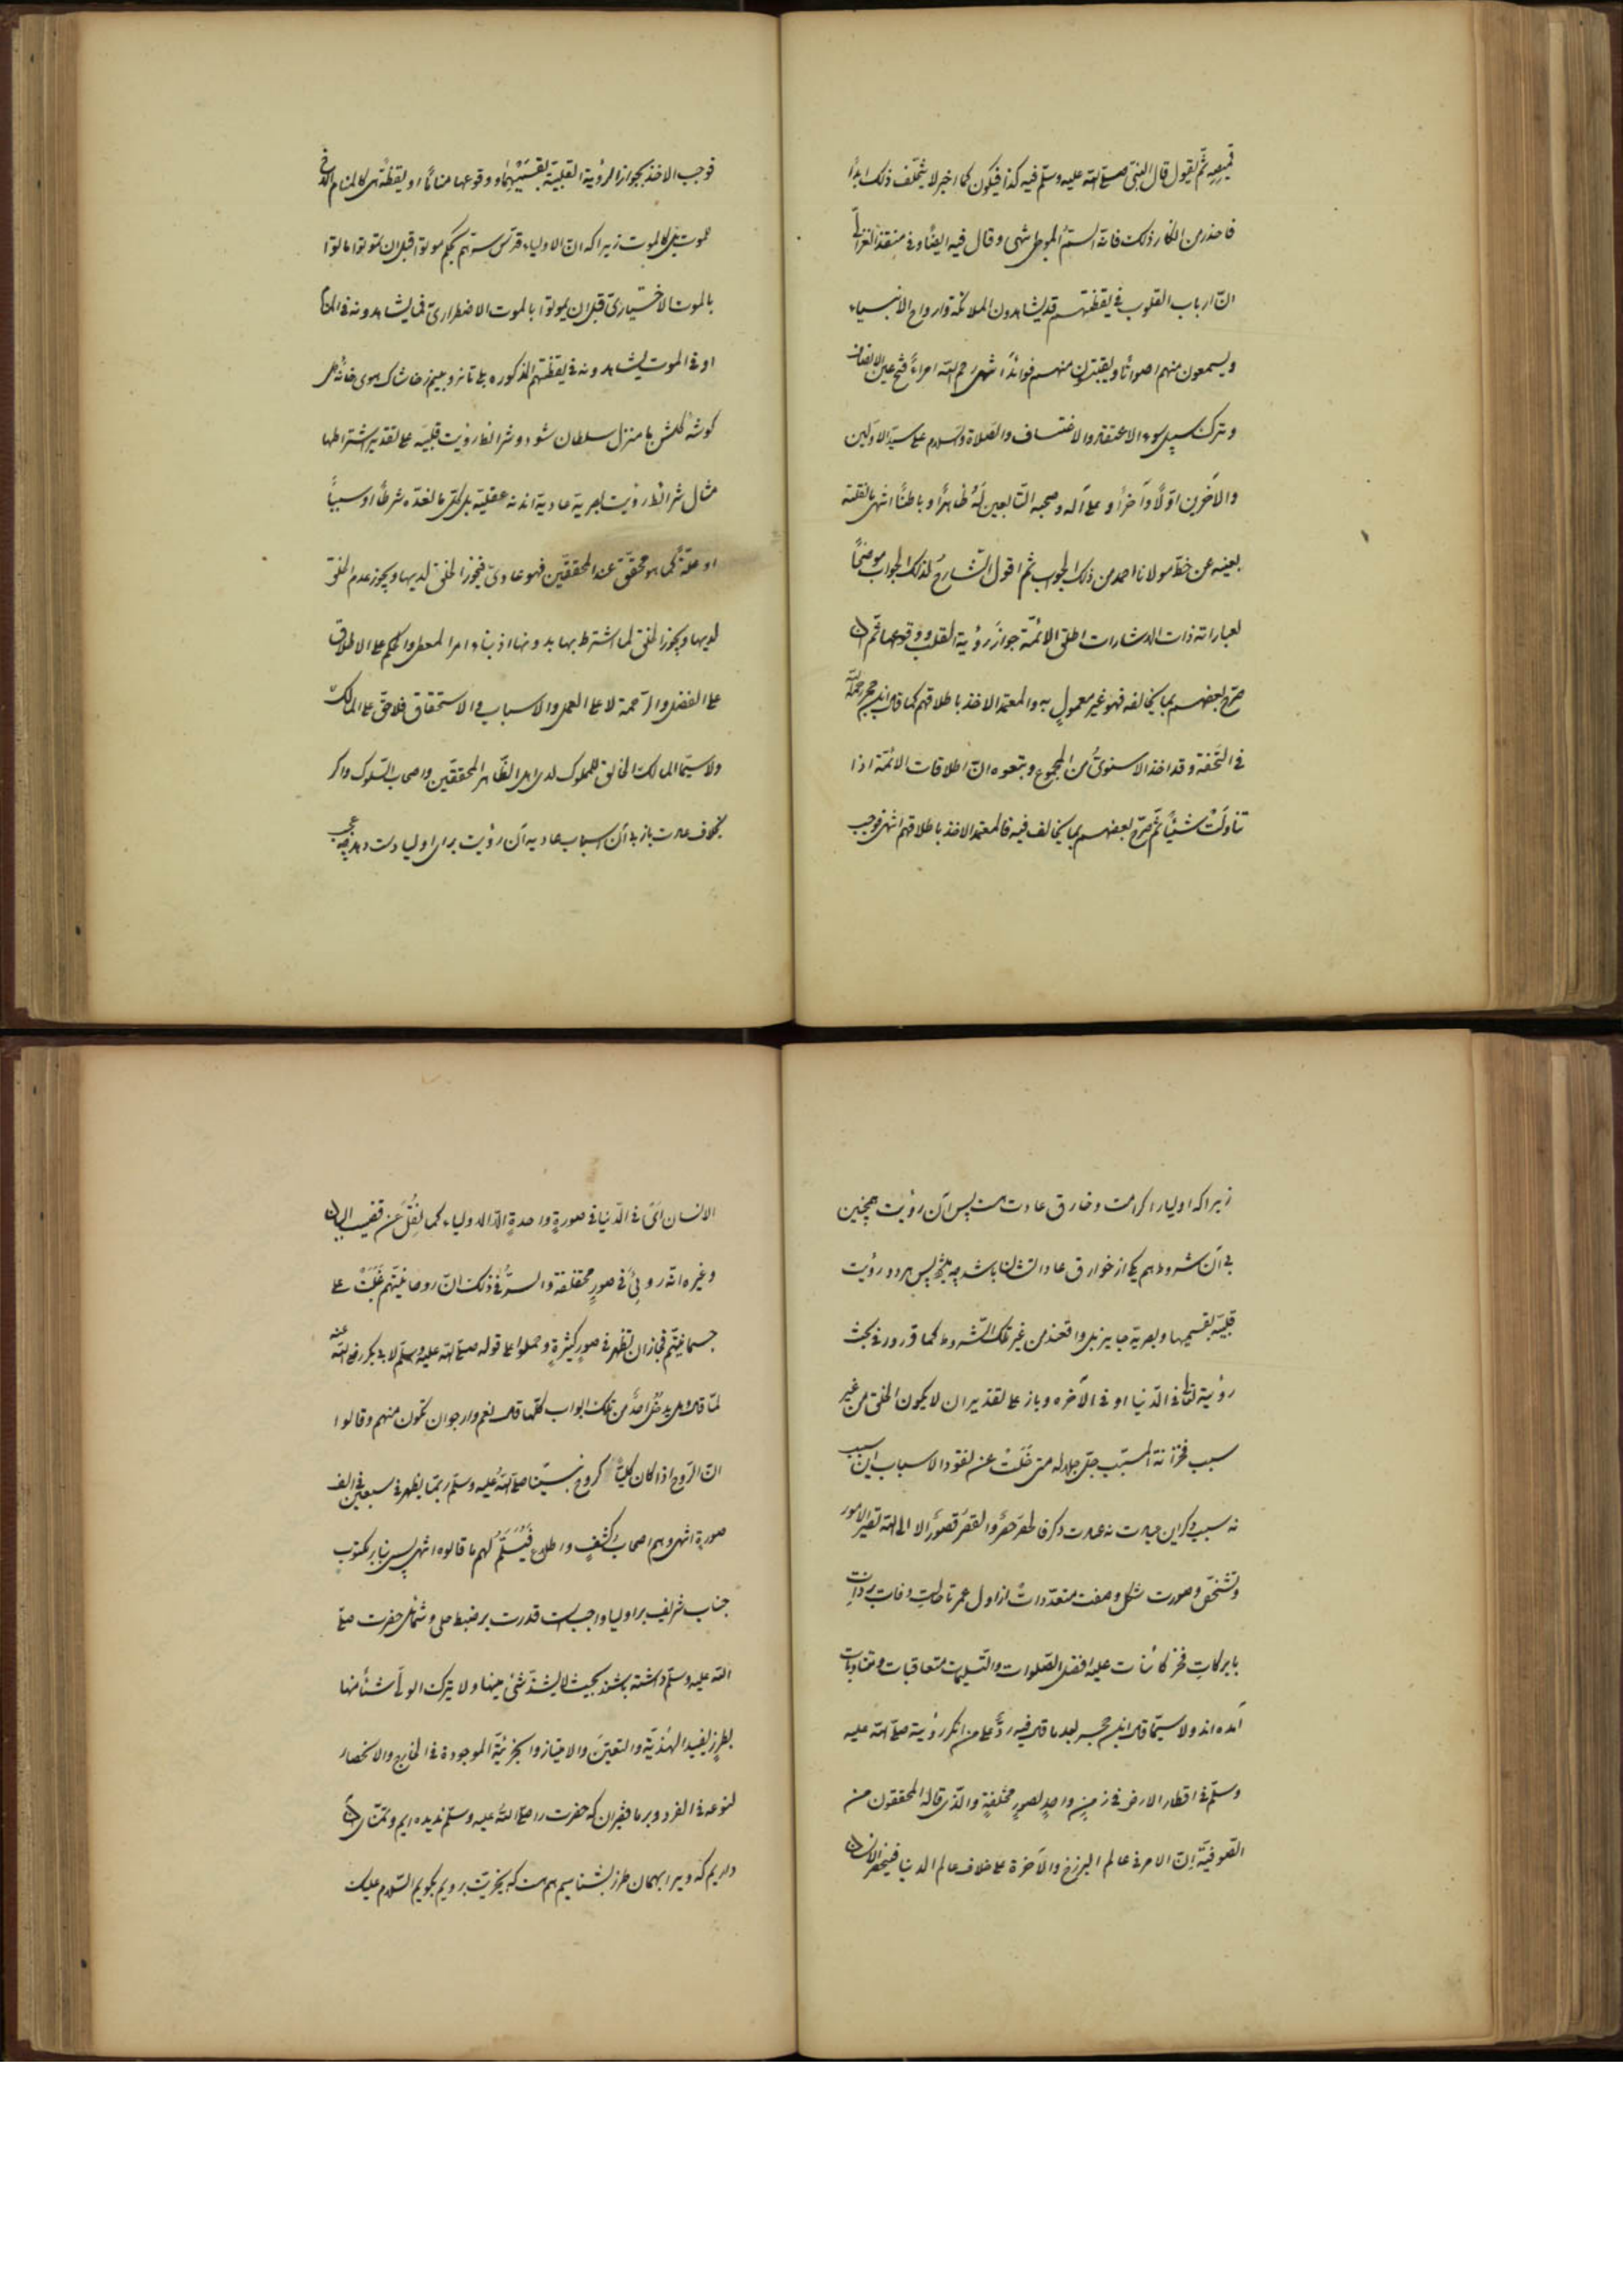 ثم يقول قال النبي صلى الله عليه وسلم فيه كذا فيكون كما اخبر لا يتخلف ذلك ابدًا
فاحذر من انكار ذلك فانه السم الموحى انتهى وقال فيه ايضًا وفي منقذ الغزالي
ان ارباب القلوب في يقظتهم قد يشاهدون الملائكة وارواح الانبياء
ويسمعون منهم اصواتًا ويقتبسون منهم فوائد انتهى رحم الله امراءً فتح عين الانصاف
وترك سبيل سوء الاعتقاد والاعتساف والصلاة والسلام على سيد الاولين
والآخرين اولًا وآخرًا وعلى آله وصحبه التابعين له ظاهرًا وباطنًا انتهى بالقلته
بعينه عن خط مولانا احمد من ذلك الجواب ثم اقول الشارح لذلك الجواب موضحًا
لعباراته ذات الاشارات اطلق الائمة جواز رؤية القلب ووقوعها ثم ان
صرح بعضهم بما يخالفه فهو غير معمول به والمعتمد الاخذ باطلاقهم كما قال ابن حجر رحمه الله
في التحفة وقد اخذ الاسنوي من المجموع وتبعوه ان اطلاقات الائمة اذا
تناولت شيئًا ثم صرح بعضهم بما يخالف فيه فالمعتمد الاخذ باطلاقهم انتهى فوجب
فوجب الاخذ بجواز الرؤية القلبية بقسميها ووقوعها منامًا او يقظة هي كالمنام الذي
كالموت بل كالموت زيرا كه ان الاولياء قدس سرهم بحكم موتوا قبل ان تموتوا ماتوا
بالموت الاختياري قبل ان يموتوا بالموت الاضطراري فما يشاهدونه في المنام
او في الموت يشاهدونه في يقظتهم المذكوره بلى تا نروبيم ز خاشاك هوى خانه دل
كوشه كلشن ما منزل سلطان نشود وشرائط رؤيت قلبيه على تقدير اشتراطها
مثال شرائط رؤيت بصريه عاديه اند نه عقليه بل كل ما نعده شرطًا او سببًا
او علة كما هو محقق عند المحققين فهو عادي فيجوز الخلق لديها ويجوز عدم الخلق
لديها ويجوز الخلق لما اشترط بها بدونها اذ بناء امر المعطي والحكم على الاطلاق
على الفضل والرحمة لا على العمل والاسباب والاستحقاق فلا حق على المالك
ولا سيما المالك الخالق للمملوك لدى اهل الظاهر المحققين واصحاب السلوك واكر
بخلاف عادت باز بي آن اسباب عاديه آن رؤيت براى اوليا دست دهد چه عجب
زيرا كه اوليا را كرامت وخارق عادت هست پس آن رؤيت همچنين
بي آن شروط هم يكى از خوارق عادات شان باشد پس هر دو رؤيت
قلبيه بقسميها وبصريه جايز بل واقعند من غير تلك الشروط كما قرروا في بحث
رؤية الله في الدنيا او في الآخره وباز على تقدير ان لا يكون الخلق من غير
سبب فخزانة المسبب جل جلاله متى خلت عن نقود الاسباب اين سبب
نه سبب دكر اين عبارت نه عبارت دكر الا الى الله تصير الامور
وتشخص وصورت شكل وصفت متعدد است از اول عمر تا حالت وفات بر ذات
بابركات فخر كائنات عليه افضل الصلوات والتسليمات متعاقبات ومتناوبات
آمده اند ولا سيما قال ابن حجر بعد ما قال فيه ردًا على من انكر رؤيته صلى الله عليه
وسلم في اقطار الارض في زمن واحد بصور مختلفة والذي قاله المحققون من
الصوفية ان الامر في عالم البرزخ والآخرة على خلاف عالم الدنيا فينحصر الانسان
الانسان اى في الدنيا في صورة واحدة الا الاولياء كما نقل عن قضيب البان
وغيره انه رؤى في صور مختلفة والسر في ذلك ان روحانيتهم غلبت على
جسمانيتهم فجاز ان تظهر في صور كثيرة وحملوا على قوله صلى الله عليه وسلم لابي بكر رضى الله عنه
لما قال هل يدخل احد من تلك ابواب كلها قال نعم وارجو ان تكون منهم وقالوا
ان الروح اذا كان كليًا كروح نبينا صلى الله عليه وسلم ربما يظهر في سبعين الف
صورة انتهى وهم اصحاب كشف واطلاع فيسلم لهم ما قالوه انتهى پس بنا بر مكتوب
جناب شريف بر اوليا واجب است قدرت بر ضبط حلى وشمائل حضرت صلى
الله عليه وسلم داشته باشند بحيث لا يشذ شئ منها ولا يترك الولي شيئًا منها
بطرز يفيد الهذية والتعين والامتياز والجزئية الموجودة في الخارج والانحصار
لنوعه في الفرد وبر ما فقيران كه حضرت را صلى الله عليه وسلم نديده ايم وتمناى آن
داريم كه ويرا بهمان طرز بشناسيم هم هست كه بخريت برويم بكويم السلام عليك